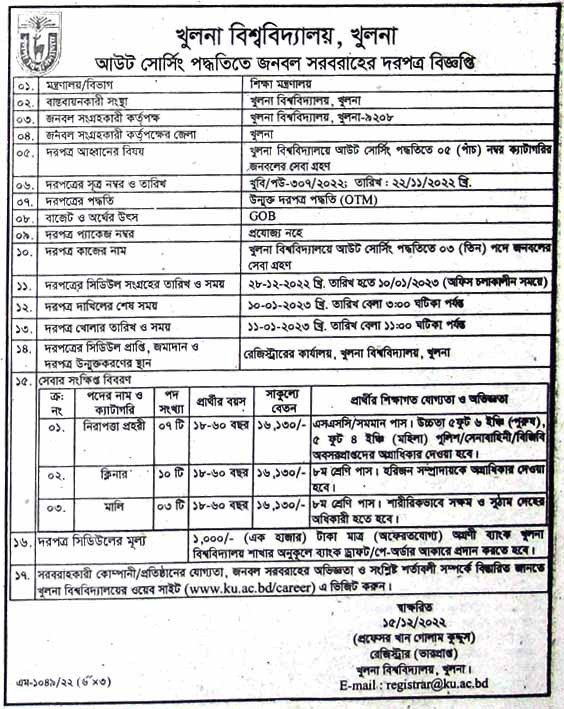 খুলনা বিশ্ববিদ্যালয়, খুলনা
আউট সোর্সিং পদ্ধতিতে জনবল সরবরাহের দরপত্র বিজ্ঞপ্তি
০১. মন্ত্রণালয়/বিভাগ শিক্ষা মন্ত্রণালয়
০২. বাস্তবায়নকারী সংস্থা খুলনা বিশ্ববিদ্যালয়, খুলনা
০৩. জনবল সংগ্রহকারী কর্তৃপক্ষ খুলনা বিশ্ববিদ্যালয়, খুলনা-৯২০৮
০৪. জনবল সংগ্রহকারী কর্তৃপক্ষের জেলা খুলনা
০৫. দরপত্র আহ্বানের বিষয় খুলনা বিশ্ববিদ্যালয়ে আউট সোর্সিং পদ্ধতিতে ০৫ (পাঁচ) নম্বর ক্যাটাগরির
জনবলের সেবা গ্রহণ
০৬. দরপত্রের সূত্র নম্বর ও তারিখ খুবি/পউ-৩০৭/২০২২; তারিখ : ২২/১১/২০২২ খ্রি.
০৭. দরপত্রের পদ্ধতি উন্মুক্ত দরপত্র পদ্ধতি (OTM)
০৮. বাজেট ও অর্থের উৎস GOB
০৯. দরপত্র প্যাকেজ নম্বর প্রযোজ্য নহে
১০. দরপত্র কাজের নাম খুলনা বিশ্ববিদ্যালয়ে আউট সোর্সিং পদ্ধতিতে ০৩ (তিন) পদে জনবলের
সেবা গ্রহণ
১১. দরপত্রের সিডিউল সংগ্রহের তারিখ ও সময় ২৮-১২-২০২২ খ্রি. তারিখ হতে ১০/০১/২০২৩ (অফিস চলাকালীন সময়ে)
১২. দরপত্র দাখিলের শেষ সময় ১০-০১-২০২৩ খ্রি. তারিখ বেলা ৩:০০ ঘটিকা পর্যন্ত
১৩. দরপত্র খোলার তারিখ ও সময় ১১-০১-২০২৩ খ্রি. তারিখ বেলা ১১:০০ ঘটিকা পর্যন্ত
১৪. দরপত্রের সিডিউল প্রাপ্তি, জমাদান ও
দরপত্র উন্মুক্তকরণের স্থান রেজিস্ট্রারের কার্যালয়, খুলনা বিশ্ববিদ্যালয়, খুলনা
১৫. সেবার সংক্ষিপ্ত বিবরণ
ক্র: নং পদের নাম ও ক্যাটাগরি পদ সংখ্যা প্রার্থীর বয়স সাকুল্যে বেতন প্রার্থীর শিক্ষাগত যোগ্যতা ও অভিজ্ঞতা
০১. নিরাপত্তা প্রহরী ০৭ টি ১৮-৬০ বছর ১৬,১৩০/- এসএসসি/সমমান পাস। উচ্চতা ৫ফুট ৬ ইঞ্চি (পুরুষ),
৫ ফুট ৪ ইঞ্চি (মহিলা) পুলিশ/সেনাবাহিনী/বিজিবি
অবসরপ্রাপ্তদের অগ্রাধিকার দেওয়া হবে।
০২. ক্লিনার ১০ টি ১৮-৬০ বছর ১৬,১৩০/- ৮ম শ্রেণি পাস। হরিজন সম্প্রদায়কে অগ্রাধিকার দেওয়া
হবে।
০৩. মালি ০৩ টি ১৮-৬০ বছর ১৬,১৩০/- ৮ম শ্রেণি পাস। শারীরিকভাবে সক্ষম ও সুঠাম দেহের
অধিকারী হতে হবে।
১৬. দরপত্র সিডিউলের মূল্য ১,০০০/- (এক হাজার) টাকা মাত্র (অফেরতযোগ্য) অগ্রণী ব্যাংক খুলনা
বিশ্ববিদ্যালয় শাখার অনুকূলে ব্যাংক ড্রাফট/পে-অর্ডার আকারে প্রদান করতে হবে।
১৭. সরবরাহকারী কোম্পানী/প্রতিষ্ঠানের যোগ্যতা, জনবল সরবরাহের অভিজ্ঞতা ও সংশ্লিষ্ট শর্তাবলী সম্পর্কে বিস্তারিত জানতে
খুলনা বিশ্ববিদ্যালয়ের ওয়েব সাইট (www.ku.ac.bd/career) এ ভিজিট করুন।
স্বাক্ষরিত
১৫/১২/২০২২
(প্রফেসর খান গোলাম কুদ্দুস)
রেজিস্ট্রার (ভারপ্রাপ্ত)
খুলনা বিশ্ববিদ্যালয়, খুলনা।
E-mail : registrar@ku.ac.bd
এম-১০৪৯/২২ (৬˝×৩)